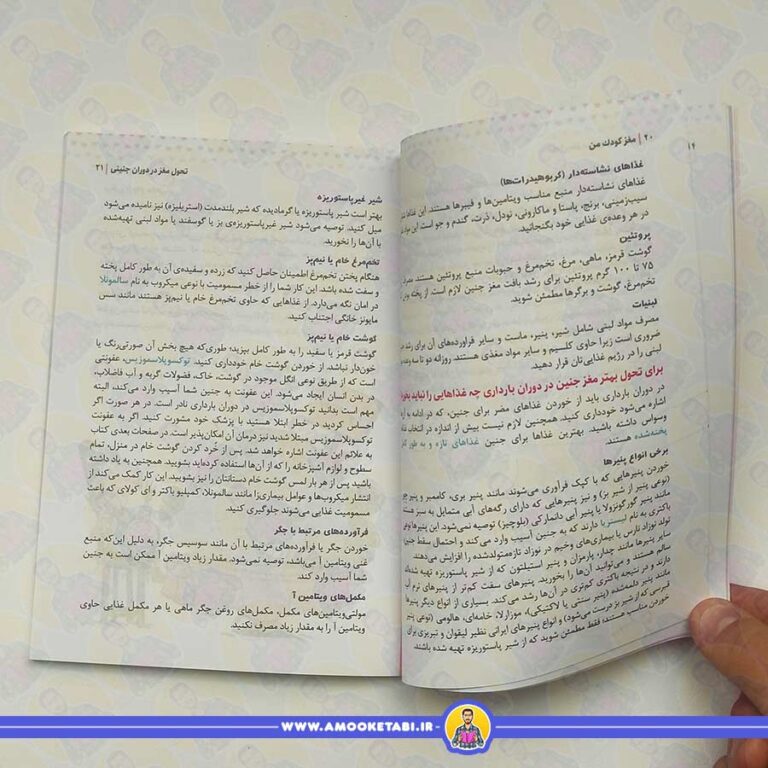 ۲۰ | مغز کودک من
غذاهای نشاسته‌دار (کربوهیدرات‌ها)
غذاهای نشاسته‌دار منبع مناسب ویتامین‌ها و فیبرها هستند. این غذاها
سیب‌زمینی، برنج، پاستا و ماکارونی، نودل، ذرت، گندم و جو است این مواد
در هر وعده‌ی غذایی خود بگنجانید.
پروتئین
گوشت قرمز، ماهی، مرغ، تخم‌مرغ و حبوبات منبع پروتئین هستند مصرف
۷۵ تا ۱۰۰ گرم پروتئین برای رشد بافت مغز جنین لازم است از پخته بودن
تخم‌مرغ، گوشت و برگرها مطمئن شوید.
لبنیات
مصرف مواد لبنی شامل شیر، پنیر، ماست و سایر فراورده‌های آن برای رشد
ضروری است زیرا حاوی کلسیم و سایر مواد مغذی هستند. روزانه دو تا سه وعده
لبنی را در رژیم غذایی‌تان قرار دهید.
برای تحول بهتر مغز جنین در دوران بارداری چه غذاهایی را نباید بخورید
در دوران بارداری باید از خوردن غذاهای مضر برای جنین، که در ادامه به آن
اشاره می‌شود خودداری کنید. همچنین لازم نیست بیش از اندازه در انتخاب غذا
وسواس داشته باشید. بهترین غذاها برای جنین غذاهای تازه و به طور کامل
پخته‌شده هستند.
برخی انواع پنیرها
خوردن پنیرهایی که با کپک فرآوری می‌شوند مانند پنیر بری، کاممبر و پنیر چور
(نوعی پنیر از شیر بز) و نیز پنیرهایی که دارای رگه‌های آبی متمایل به سبز هستند
مانند پنیر گورگونزولا یا پنیر آبی دانمارکی (بلوچیز) توصیه نمی‌شود. این پنیرها نوعی
باکتری به نام لیستریا دارند که به جنین آسیب وارد می‌کند و احتمال سقط جنین،
تولد نوزاد نارس یا بیماری‌های وخیم در نوزاد تازه‌متولدشده را افزایش می‌دهند.
سایر پنیرها مانند چدار، پارمزان و پنیر استیلتون که از شیر پاستوریزه تهیه شده‌اند
سالم هستند و می‌توانید آن‌ها را بخورید. پنیرهای سفت کم‌تر از پنیرهای نرم آب
دارند و در نتیجه باکتری کم‌تری در آن‌ها رشد می‌کند. بسیاری از انواع دیگر پنیرها
مانند پنیر دلمه‌شده (پنیر سنتی یا لاکتیکی)، موزارلا، خامه‌ای، هالومی (نوعی پنیر
قبرسی که از شیر بز درست می‌شود) و انواع پنیرهای ایرانی نظیر لیقوان و تبریزی برای
خوردن مناسب هستند؛ فقط مطمئن شوید که از شیر پاستوریزه تهیه شده باشند.
تحول مغز در دوران جنینی | ۲۱
شیر غیرپاستوریزه
بهتر است شیر پاستوریزه یا گرمادیده که شیر بلندمدت (استریلیزه) نیز نامیده می‌شود
میل کنید. توصیه می‌شود شیر غیرپاستوریزه‌ی بز یا گوسفند یا مواد لبنی تهیه‌شده
با آن‌ها را نخورید.
تخم‌مرغ خام یا نیم‌پز
هنگام پختن تخم‌مرغ اطمینان حاصل کنید که زرده و سفیده‌ی آن به طور کامل پخته
و سفت شده باشد. این کار شما را از خطر مسمومیت با نوعی میکروب به نام سالمونلا
در امان نگه می‌دارد. از غذاهایی که حاوی تخم‌مرغ خام یا نیم‌پز هستند مانند سس
مایونز خانگی اجتناب کنید.
گوشت خام یا نیم‌پز
گوشت قرمز یا سفید را به طور کامل بپزید؛ طوری‌که هیچ بخش آن صورتی‌رنگ یا
خون‌دار نباشد. از خوردن گوشت خام خودداری کنید. توکسوپلاسموزیس، عفونتی
است که از طریق نوعی انگل موجود در گوشت، خاک، فضولات گربه و آب فاضلاب،
در بدن انسان ایجاد می‌شود. این عفونت به جنین شما آسیب وارد می‌کند، البته
مهم است بدانید توکسوپلاسموزیس در دوران بارداری نادر است. در هر صورت اگر
احساس کردید در خطر ابتلا هستید با پزشک خود مشورت کنید. اگر به عفونت
توکسوپلاسموزیس مبتلا شدید نیز درمان آن امکان‌پذیر است. در صفحات بعدی کتاب
به علائم این عفونت اشاره خواهد شد. پس از خرد کردن گوشت خام در منزل، تمام
سطوح و لوازم آشپزخانه را که از آن‌ها استفاده کرده‌اید بشویید. همچنین به یاد داشته
باشید پس از هر بار لمس گوشت خام دستانتان را نیز بشویید. این کار کمک می‌کند از
انتشار میکروب‌ها و عوامل بیماری‌زا مانند سالمونلا، کمپیلو باکتر و ای کولای که باعث
مسمومیت غذایی می‌شوند جلوگیری کنید.
فرآورده‌های مرتبط با جگر
خوردن جگر یا فرآورده‌های مرتبط با آن مانند سوسیس جگر، به دلیل این‌که منبع
غنی ویتامین آ می‌باشد، توصیه نمی‌شود. مقدار زیاد ویتامین آ ممکن است به جنین
شما آسیب وارد کند.
مکمل‌های ویتامین آ
مولتی‌ویتامین‌های مکمل، مکمل‌های روغن جگر ماهی یا هر مکمل غذایی حاوی
ویتامین آ را به مقدار زیاد مصرف نکنید.
WWW.AMOOKETABI.IR